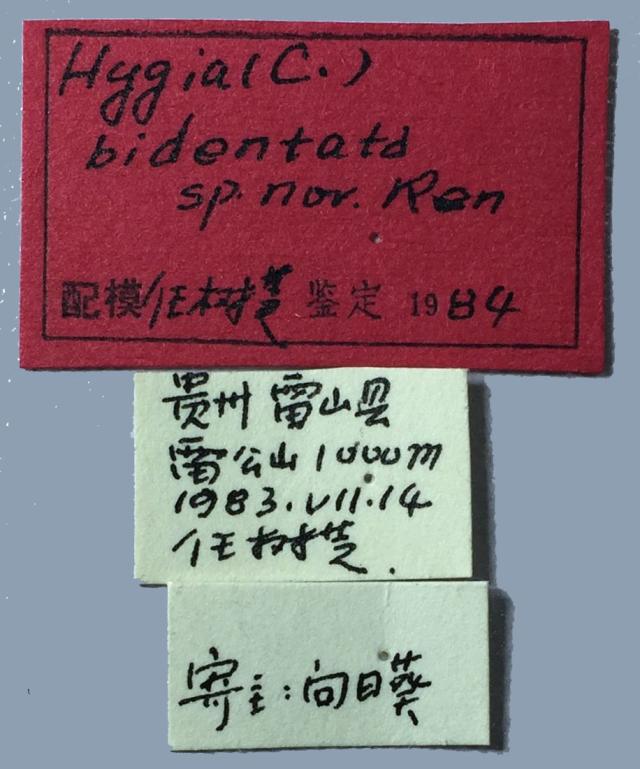 Hygia(C.)
bidentata
sp. nov. Ren
配模/任树芝 鉴定 1984
贵州 雷山县
雷公山 1000m
1983.VII.14
任树芝.
寄主:向日葵